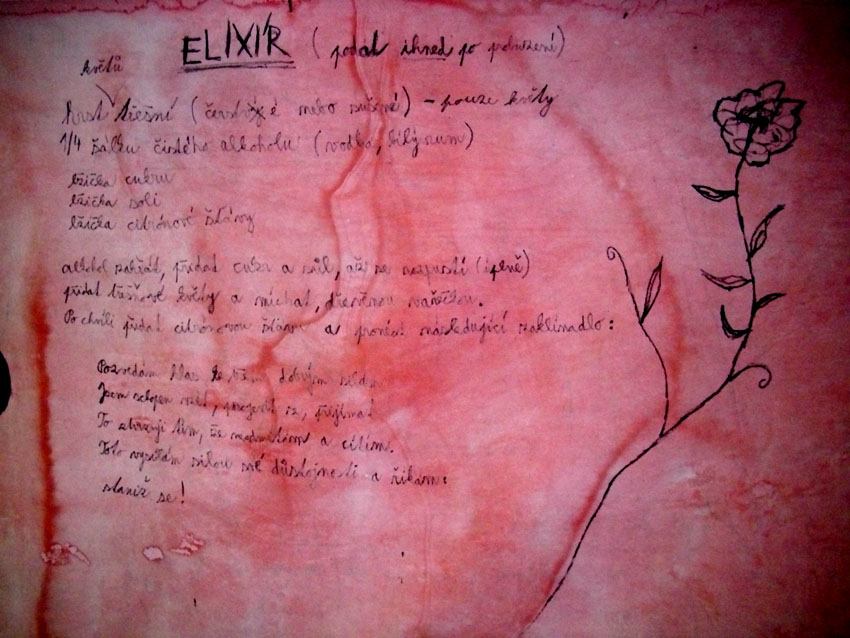 ELIXÍR (podat ihned po probuzení)
květů
hrst třešní (čerstvé nebo sušené) – pouze květy
1/4 šálku čistého alkoholu (vodka, bílý rum)
lžička cukru
lžička soli
lžička citrónové šťávy
alkohol zahřát, přidat cukr a sůl, až se rozpustí (úplně)
přidat třešňové květy a míchat, dřevěnou vařečkou.
Po chvíli přidat citrónovou šťávu a pronést následující zaklínadlo:
Pozvedám hlas ke všem dobrým
Jsem schopen přijímat
To stvrzuji tím, že a cítím.
Toto vysílám silou své důstojnosti a říkám:
staniž se!